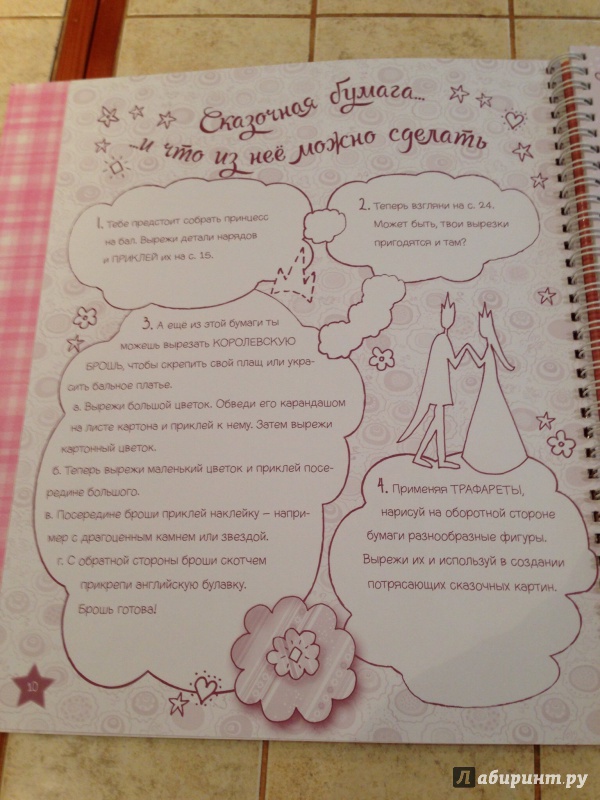 Сказочная бумага...
...и что из неё можно сделать
1. Тебе предстоит собрать принцесс
на бал. Вырежи детали нарядов
и ПРИКЛЕЙ их на с. 15.
2. Теперь взгляни на с. 24.
Может быть, твои вырезки
пригодятся и там?
3. А ещё из этой бумаги ты
можешь вырезать КОРОЛЕВСКУЮ
БРОШЬ, чтобы скрепить свой плащ или укра-
сить бальное платье.
а. Вырежи большой цветок. Обведи его карандашом
на листе картона и приклей к нему. Затем вырежи
картонный цветок.
б. Теперь вырежи маленький цветок и приклей посе-
редине большого.
в. Посередине броши приклей наклейку – напри-
мер с драгоценным камнем или звездой.
г. С обратной стороны броши скотчем
прикрепи английскую булавку.
Брошь готова!
4. Применяя ТРАФАРЕТЫ,
нарисуй на оборотной стороне
бумаги разнообразные фигуры.
Вырежи их и используй в создании
потрясающих сказочных картин.
10
Лабиринт.ру